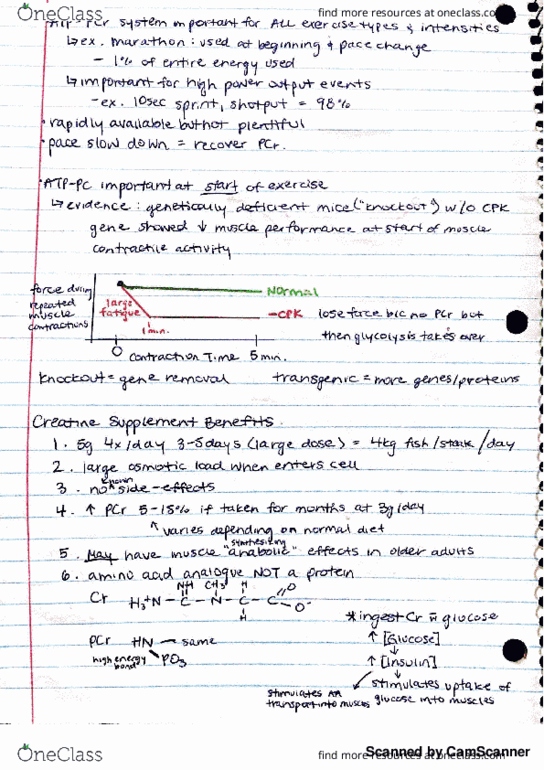 OneClass
find more resources at oneclass.com
ATP-PCr system important for ALL exercise types & intensities
↳ ex. marathon: used at beginning & pace change
- 1% of entire energy used
↳ important for high power output events
- ex. 10sec sprint, shotput = 98%
· rapidly available but not plentiful
· pace slow down = recover PCr.
· ATP-PC important at start of exercise
↳ evidence: genetically deficient mice ("knockout") w/o CPK
gene showed ↓ muscle performance at start of muscle
contractile activity
force during
repeated
muscle
contractions
Normal
large
fatigue
1 min.
-CPK
lose force b/c no PCr but
then glycolysis takes over
0 contraction Time 5 min.
knockout = gene removal transgenic = more genes/proteins
Creatine Supplement Benefits.
1. 5g 4x/day 3-5days (large dose) = 4kg fish/steak/day
2. large osmotic load when enters cell
3. no known side-effects
4. ↑ PCr 5-15% if taken for months at 3g/day
↑ varies depending on normal diet
synthesizing
5. May have muscle "anabolic" effects in older adults
6. amino acid analogue NOT a protein
NH CH3 H O
Cr H3+N - C - N - C - C - O-
H
* ingest Cr w glucose
↑ [Glucose]
↓
↑ [Insulin]
PCr HN - same
high energy
bond
PO3
stimulates uptake of
glucose into muscles
stimulates AA
transport into muscles
OneClass
find more resources at oneclass.com
Scanned by CamScanner